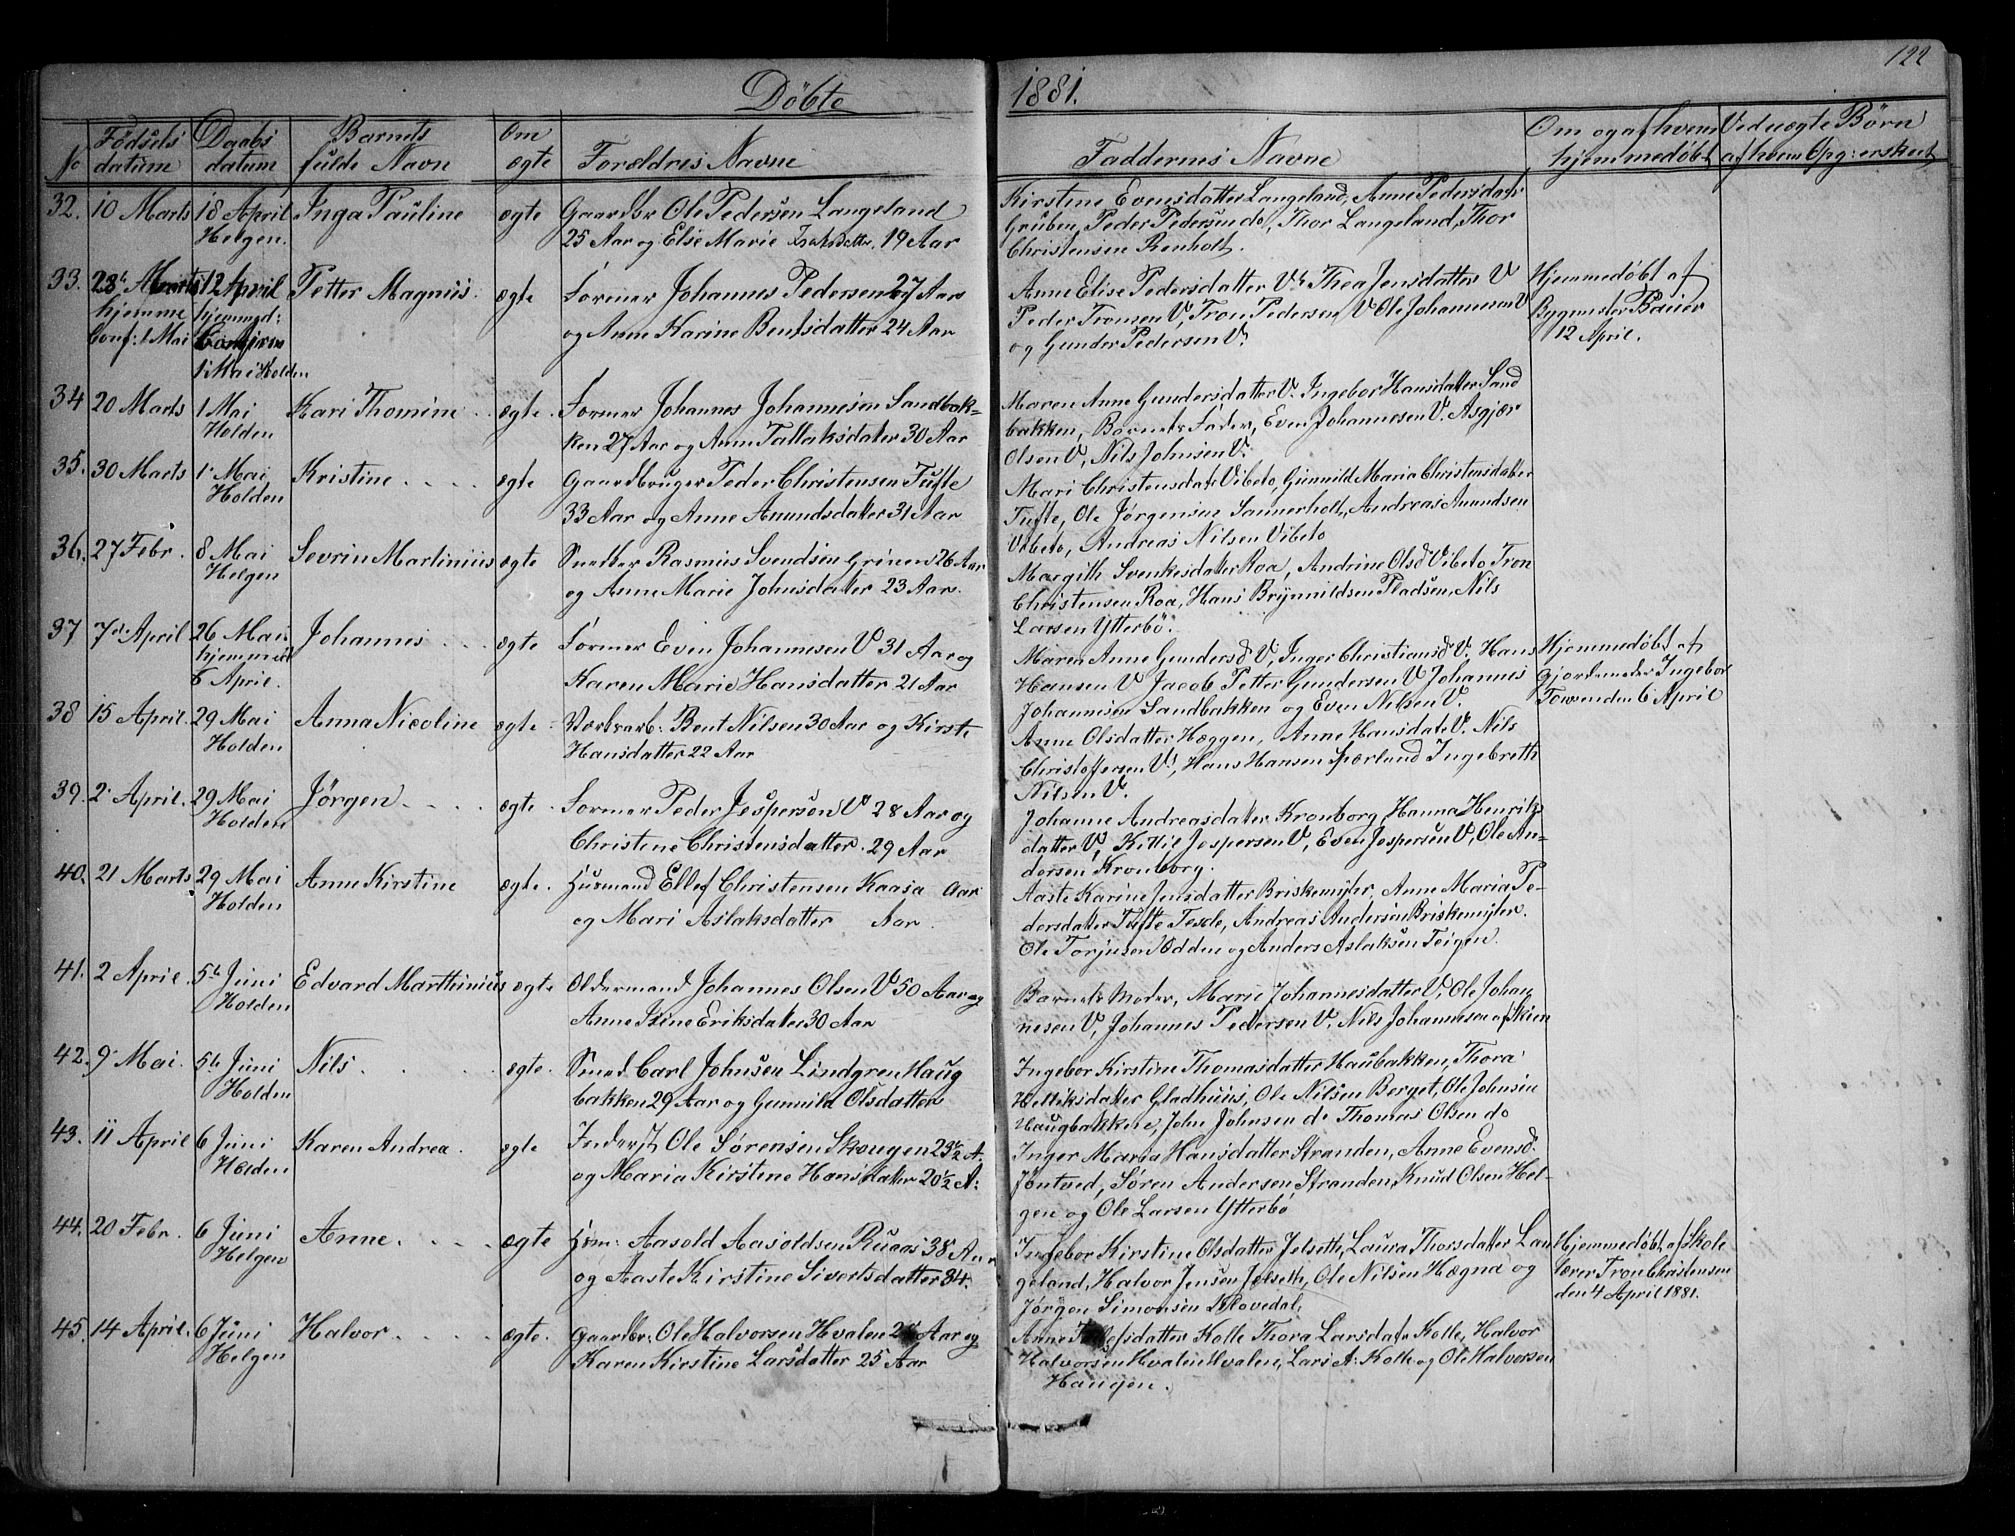 122
Döbte 1881.
No Födsels datum Daabs datum Barnets fulde Navn Om ægte Forældres Navne Faddernes Navne Om og af hvem hjemmedöbt Ved uægte Börn af hvem Opg: er skeet
32. 10 Marts 18 April Inga Pauline ægte Gaardbr Ole Pedersen Langeland
Helgen. 25 Aar og Else Marie Isaksdatter. 19 Aar
Kirstine Evensdatter Langeland, Anne Pedersdatr
Gruben, Peder Pedersen do, Thor Langeland, Thor
Christensen Renholt.
33. 28 Marts 12 April Petter Magnus. ægte Former Johannes Pedersen 27 Aar
hjemme hjemmed: og Anne Karine Bentsdatter 24 Aar
Conf: 1 Mai
1 Mai Holden
Anne Elise Pedersdatter V. Thea Jensdatter V
Peder Tronsen V, Tron Pedersen V Ole Johannesen V
og Gunder Pedersen V.
Hjemmedöbt af
Bygmester Baüer
12 April.
34 20 Marts 1 Mai Kari Thomine ægte. Former Johannes Johannesen Sandbak-
Holden ken 27 Aar og Anne Tallaksdater 30 Aar
Maren Anne Gundersdatter V. Ingebor Hansdatter Sand
bakken, Barnets Fader, Even Johannesen V. Asgjær
Olsen V, Nils Johnsen V.
35. 30 Marts 1 Mai Kristine ægte Gaardbruger Peder Christensen Tufte
Holden 33 Aar og Anne Amundsdater 31 Aar
Mari Christensdatr Vibeto, Gunnild Maria Christensdatter
Tufte, Ole Jörgensen Sannerholt, Andreas Amundsen
Vibeto, Andreas Nilsen Vibeto
36. 27 Febr. 8 Mai Sevrin Martinius ægte Snedker Rasmus Svendsen Grinen 26 Aar
Helgen og Anne Marie Johnsdatter 23 Aar.
Margith Svenkesdatter Roa, Andrine Olsd Vibeto Tron
Christensen Roa, Hans Brynnildsen Pladsen, Nils
Larsen Ytterbö.
37 7d. April 26 Mai. Johannes ægte Former Even Johannesen V 31 Aar og
6 April. Karen Marie Hansdatter 21 Aar
Maren Anne Gundersd V, Inger Christiansd V. Hans
Hansen V Jacob Petter Gundersen V Johannes
Johannesen Sandbakken og Even Nilsen V.
Hjemmedöbt af
Gjordemoder Ingebor
Towsen den 6 April
38 15 April. 29 Mai Anna Nicoline ægte Værksarb: Bent Nilsen 30 Aar og Kirste
Holden Hansdatter 22 Aar
Anne Olsdatter Hæggen, Anne Hansdatr V. Nils
Christoffersen V, Hans Hansen Spærland Ingebreth
Nilsen V.
39. 2 April. 29 Mai Jörgen ægte. Former Peder Jespersen V 28 Aar og
Holden Christine Christensdatter. 29 Aar
Johanne Andreasdater Kronborg, Hanna Henriks
datter V, Kittil Jespersen V, Even Jespersen V, Ole An-
dersen Kronborg.
40. 21 Marts 29 Mai Anne Kirstine ægte. Husmand Ellef Christensen Kaasa Aar
Holden og Mari Aslaksdatter Aar.
Aaste Karine Jensdatter Briskemyhr, Anne Maria Pe-
dersdatter Tufte Texle, Andreas Andersen Briskemyhr.
Ole Torjusen Odden og Anders Aslaksen Teigen.
41. 2 April. 5te Juni Edvard Marthinius ægte Oldermand Johannes Olsen V 50 Aar og
Holden Anne Stine Eriksdater 30 Aar
Barnets Moder, Marie Johannesdatter V, Ole Johan
nesen V, Johannes Pedersen V. Nils Johannesen af Skien
42. 9 Mai. 5te Juni Nils ægte. Smed Carl Johnsen Lindgren Haug
Holden bakken 29 Aar og Gunnild Olsdatter
Ingebor Kirstine Thomasdatter Haubakken, Thora
Helliksdatter Gladhuus, Ole Nilsen Berget, Ole Johnsen
Haugbakken, John Johnsen do Thomas Olsen do
43. 11 April 6 Juni Karen Andrea. ægte Inderst Ole Sörensen Skougen 23½ A.
Holden og Maria Kirstine Hansdatter 20½ A:
Inger Maria Hansdatter Stranden, Anne Evensd.
Jöntved, Sören Andersen Stranden, Knud Olsen Hel-
gen og Ole Larsen Ytterbö
44. 20 Febr. 6 Juni Anne. ægte Hsm: Aasold Aasoldsen Ruaas 38 Aar
Helgen og Aaste Kirstine Sivertsdatter 34.
Ingebor Kirstine Olsdatter Jelseth, Laura Thorsdatter Lan
geland, Halvor Jensen Jelseth, Ole Nilsen Hægna og
Jörgen Simonsen Klovedal,
Hjemmedöbt af Skole
lærer Tron Christensen
den 4 April 1881.
45. 14 April. 6 Juni Halvor ægte. Gaardbr: Ole Halvorsen Hvalen Aar og
Helgen Karen Kirstine Larsdatter 25 Aar
Anne datter Kolle Thora Larsdatr Kolle, Halvor
Halvorsen Hvalen Hvalen, Lars A: Kolle og Ole Halvorsen
Haugen.